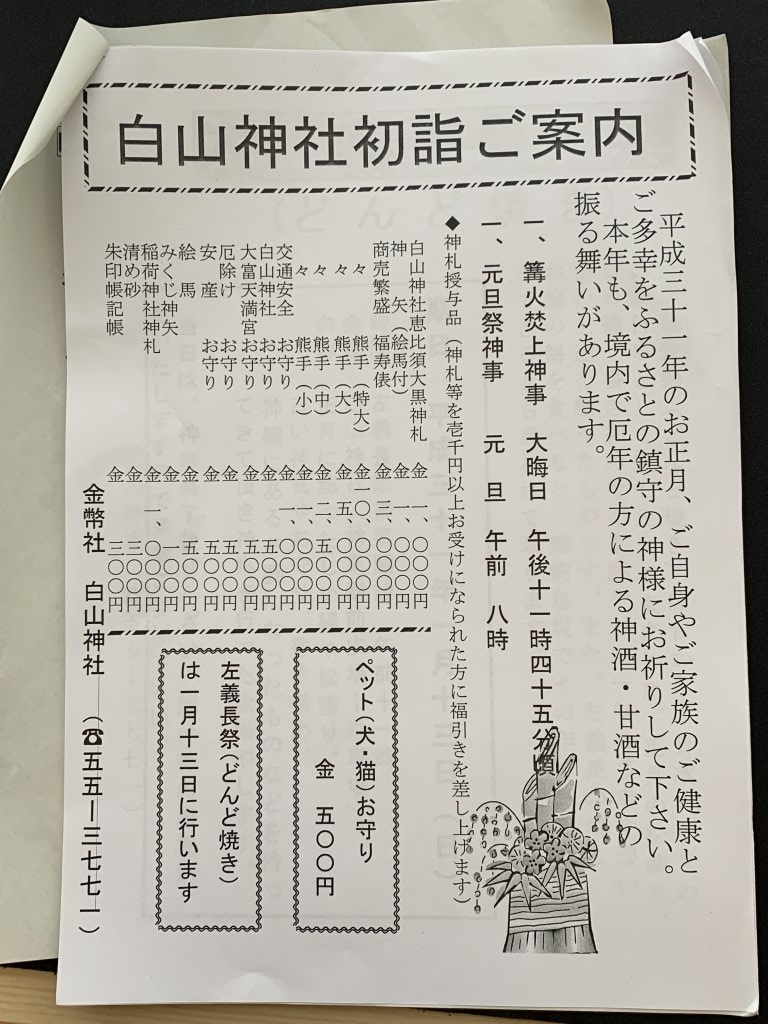 白山神社初詣ご案内
平成三十一年のお正月、ご自身やご家族のご健康と
ご多幸をふるさとの鎮守の神様にお祈りして下さい。
本年も、境内で厄年の方による神酒・甘酒などの
振る舞いがあります。
一、篝火焚上神事 大晦日 午後十一時四十五分頃
一、元旦祭神事 元旦 午前 八時
◆神札授与品(神札等を壱千円以上お受けになられた方に福引きを差し上げます)
白山神社恵比須大黒神札 金 一、〇〇〇円
神 矢(絵馬付) 金 一、〇〇〇円
商売繁盛 福寿俵 金 三、〇〇〇円
々 熊手(特大) 金一〇、〇〇〇円
々 熊手(大) 金 五、〇〇〇円
々 熊手(中) 金 二、五〇〇円
々 熊手(小) 金 一、〇〇〇円
交通安全 お守り 金 一、〇〇〇円
白山神社 お守り 金 五〇〇円
大富天満宮 お守り 金 五〇〇円
厄除け お守り 金 五〇〇円
安産 お守り 金 五〇〇円
絵馬 金 五〇〇円
みくじ神矢 金 一〇〇円
稲荷神社神札 金 一、〇〇〇円
清め砂 金 三〇〇円
朱印帳記帳 金 三〇〇円
ペット(犬・猫)お守り
金 五〇〇円
左義長祭(どんど焼き)
は一月十三日に行います
金幣社 白山神社 (☎五五ー三七七一)